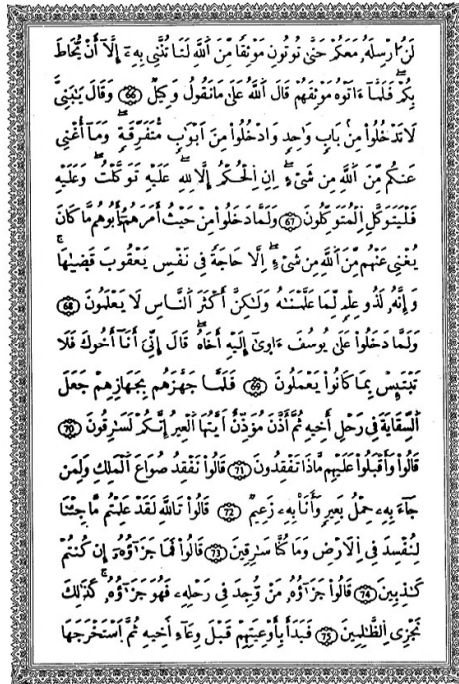 لَنُ ارْسِلَهُۥ مَعَكُمْ حَتَّىٰ تُوتُونِ مَوْثِقًا مِّنَ اَللَّهِ لَتَاتُنَّنِى بِهِۦٓ إِلَّآ أَنْ يُّحَاطَ
بِكُمْ فَلَمَّآ ءَاتَوْهُ مَوْثِقَهُمْ قَالَ اَللَّهُ عَلَىٰ مَا نَقُولُ وَكِيلٌ 66 وَقَالَ يَٰبَنِىِّ
لَا تَدْخُلُواْ مِنۢ بَابٍ وَٰحِدٍ وَادْخُلُواْ مِنَ اَبْوَٰبٍ مُّتَفَرِّقَةٍ وَمَآ أُغْنِى
عَنكُم مِّنَ اَللَّهِ مِن شَىْءٍ إِنِ اِلْحُكْمُ إِلَّا لِلهِ عَلَيْهِ تَوَكَّلْتُ وَعَلَيْهِ
فَلْيَتَوَكَّلِ اِلْمُتَوَكِّلُونَ 67 وَلَمَّا دَخَلُواْ مِنْ حَيْثُ أَمَرَهُمُۥٓ أَبُوهُم مَّا كَانَ
يُغْنِى عَنْهُم مِّنَ اَللَّهِ مِن شَىْءٍ اِلَّا حَاجَةً فِى نَفْسِ يَعْقُوبَ قَضَيٰهَا
وَإِنَّهُۥ لَذُو عِلْمٍ لِّمَا عَلَّمْنَٰهُ وَلَٰكِنَّ أَكْثَرَ اَلنَّاسِ لَا يَعْلَمُونَ 68
وَلَمَّا دَخَلُواْ عَلَىٰ يُوسُفَ ءَاوِىٰٓ إِلَيْهِ أَخَاهُ قَالَ إِنِّىَ أَنَآ أَخُوكَ فَلَا
تَبْتَئِسْ بِمَا كَانُواْ يَعْمَلُونَ 69 فَلَمَّا جَهَّزَهُم بِجَهَازِهِمْ جَعَلَ
اَلسِّقَايَةَ فِى رَحْلِ أَخِيهِ ثُمَّ أَذَّنَ مُوَذِّنٌ اَيَّتُهَا اَلْعِيرُ إِنَّكُمْ لَسَٰرِقُونَ 70
قَالُواْ وَأَقْبَلُواْ عَلَيْهِم مَّاذَا تَفْقِدُونَ 71 قَالُواْ نَفْقِدُ صُوَاعَ اَلْمَلِكِ وَلِمَن
جَآءَ بِهِۦ حِمْلُ بَعِيرٍ وَأَنَا بِهِۦ زَعِيمٌ 72 قَالُواْ تَاللَّهِ لَقَدْ عَلِمْتُم مَّا جِئْنَا
لِنُفْسِدَ فِى اِلَارْضِ وَمَا كُنَّا سَٰرِقِينَ 73 قَالُواْ فَمَا جَزَٰٓؤُهُۥٓ إِن كُنتُمْ
كَٰذِبِينَ 74 قَالُواْ جَزَٰٓؤُهُۥ مَنْ وُّجِدَ فِى رَحْلِهِۦ فَهُوَ جَزَٰٓؤُهُۥ كَذَٰلِكَ
نَجْزِى اِلظَّٰلِمِينَ 75 فَبَدَأَ بِأَوْعِيَتِهِمْ قَبْلَ وِعَآءِ اَخِيهِ ثُمَّ اَسْتَخْرَجَهَا